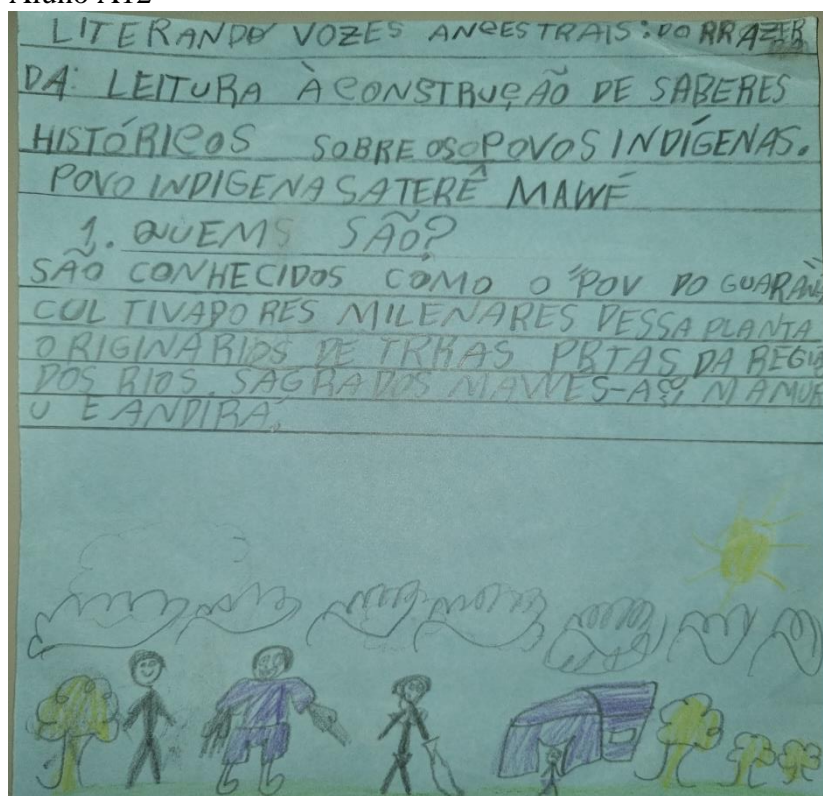 Aluno A12
LITERANDO VOZES ANCESTRAIS: DO PRAZER
DA: LEITURA À CONSTRUÇÃO DE SABERES
HISTÓRICOS SOBRE OSOPOVOS INDÍGENAS.
POVO INDIGENA SATERÊ MAWÉ
1. QUEMS SÃO?
SÃO CONHECIDOS COMO O "POV DO GUARANÁ"
CULTIVADORES MILENARES DESSA PLANTA
ORIGINÁRIOS DE TRRAS PRTAS DA REGIÃ
DOS RIOS SAGRADOS MAWES-AÇÚ MAMUR
U E ANDIRÁ.